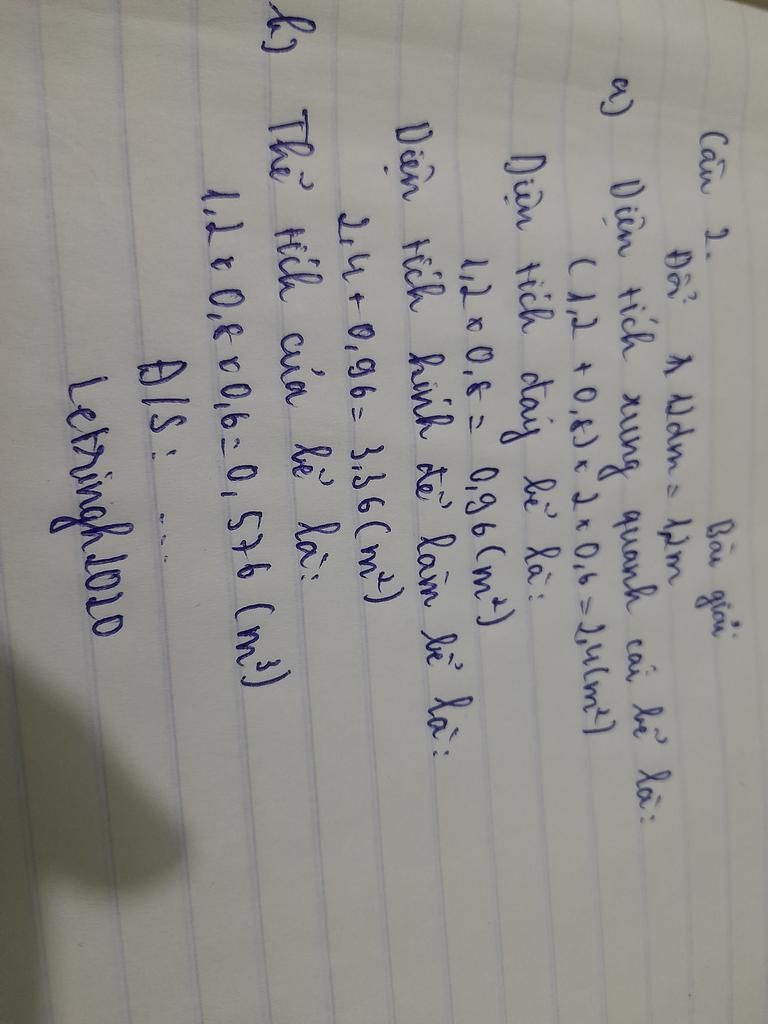 Bài giải
Câu 2.
Đổi 12dm = 1,2m
a) Diện tích xung quanh cái bể là:
(1,2 + 0,8) x 2 x 0,6 = 2,4(m²)
Diện tích đáy bể là:
1,2 x 0,8 = 0,96(m²)
Diện tích kính để làm bể là:
2,4 + 0,96 = 3,36(m²)
b) Thể tích của bể là:
1,2 x 0,8 x 0,6 = 0,576 (m³)
Đ/S: ...